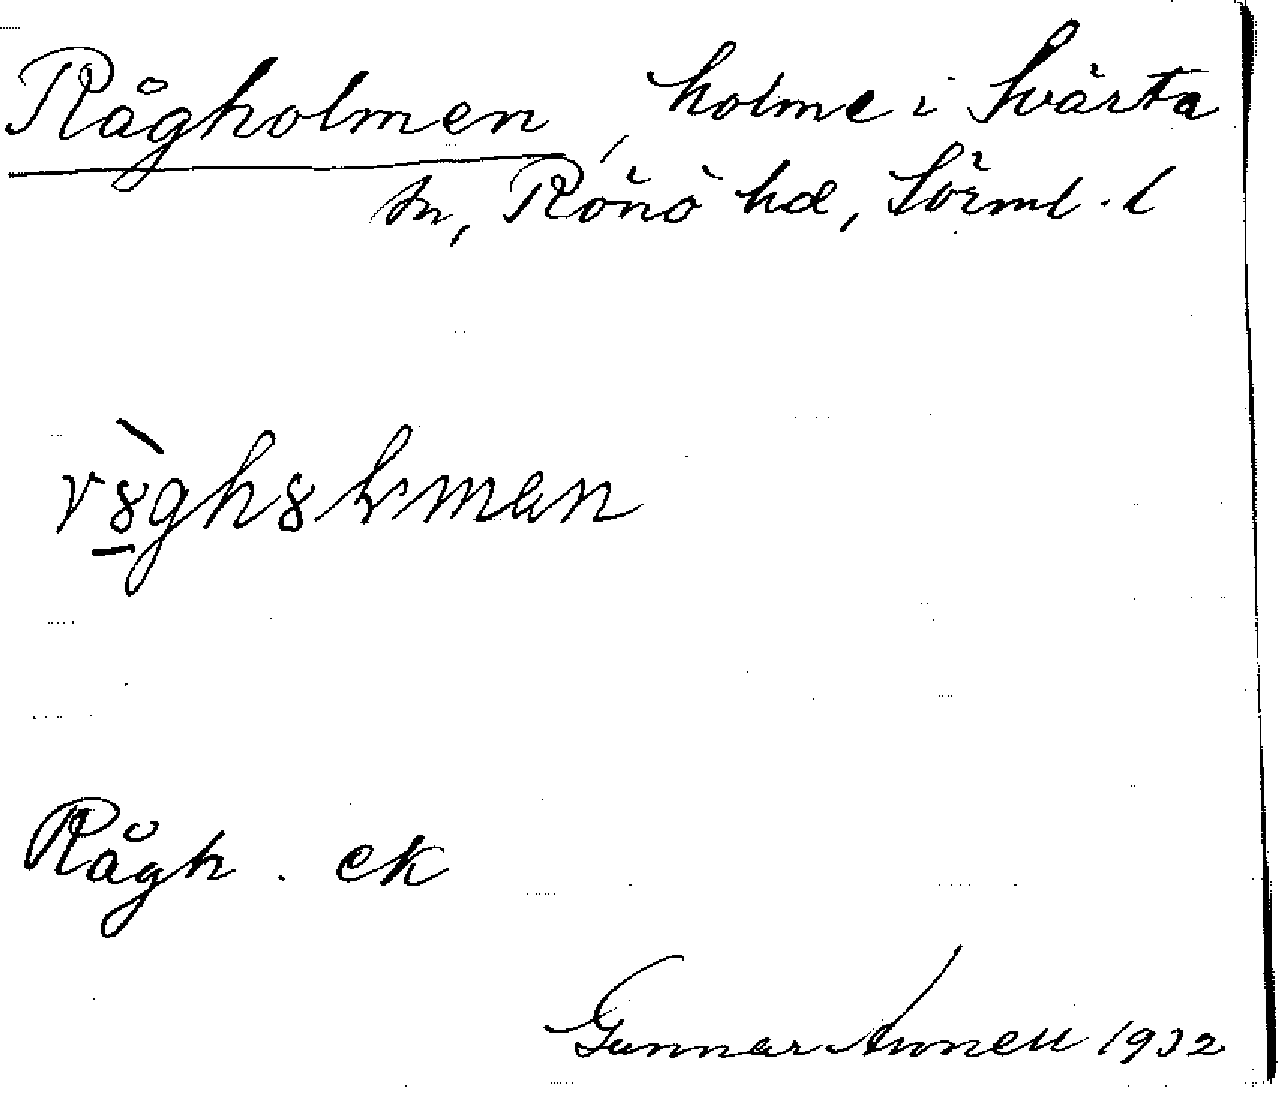 Rågholmen, holme i Svärta
sn, Rönö hd, Sörml. l
Rågh. ek
Gunnar 1932